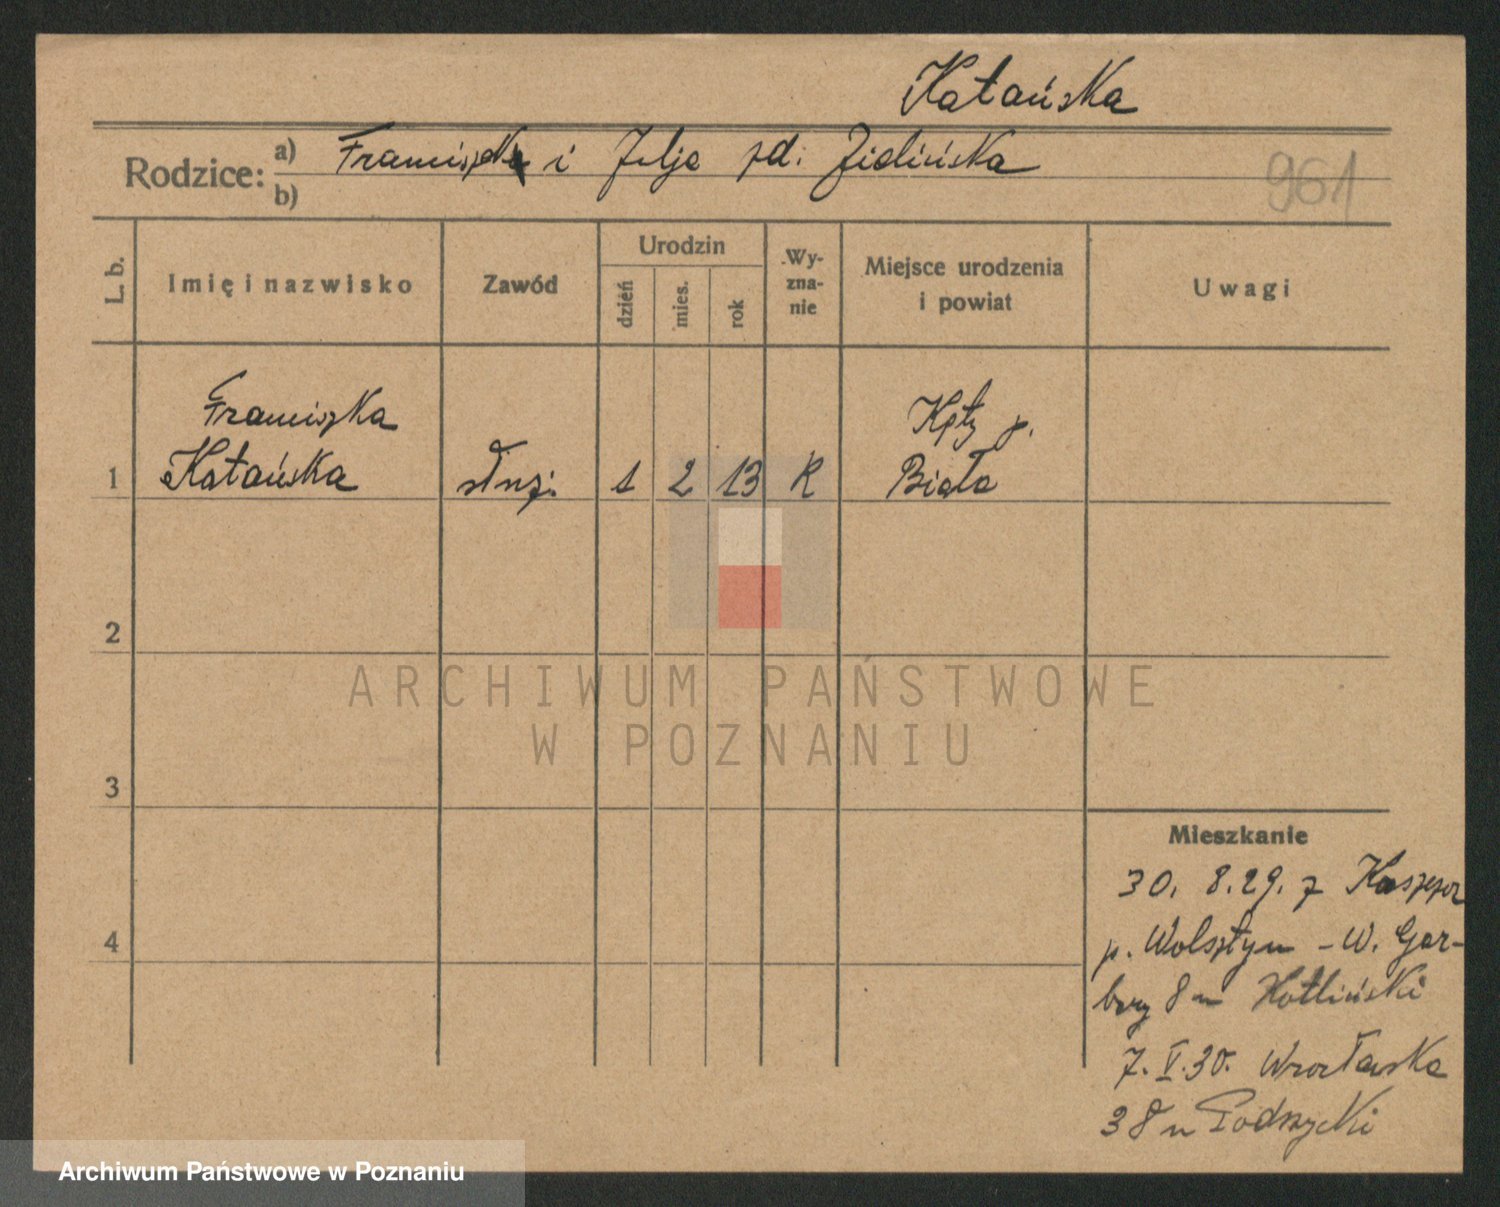 Katańska
Rodzice: a) Franciszek i Julja zd. Zielińska
b)
961
L. b. Imię i nazwisko Zawód Urodzin dzień mies. rok Wy-zna-nie Miejsce urodzenia i powiat Uwagi
Franciszka Kęty p.
1 Katańska służ. 1 2 13 R Biała
2
3
4
Mieszkanie
30. 8.29. z
p. Wolsztyn - W. Gar-
bary 8 u Kotliński
7. V. 30. Wrocławska
38 u
ARCHIWUM PAŃSTWOWE
W POZNANIU
Archiwum Państwowe w Poznaniu